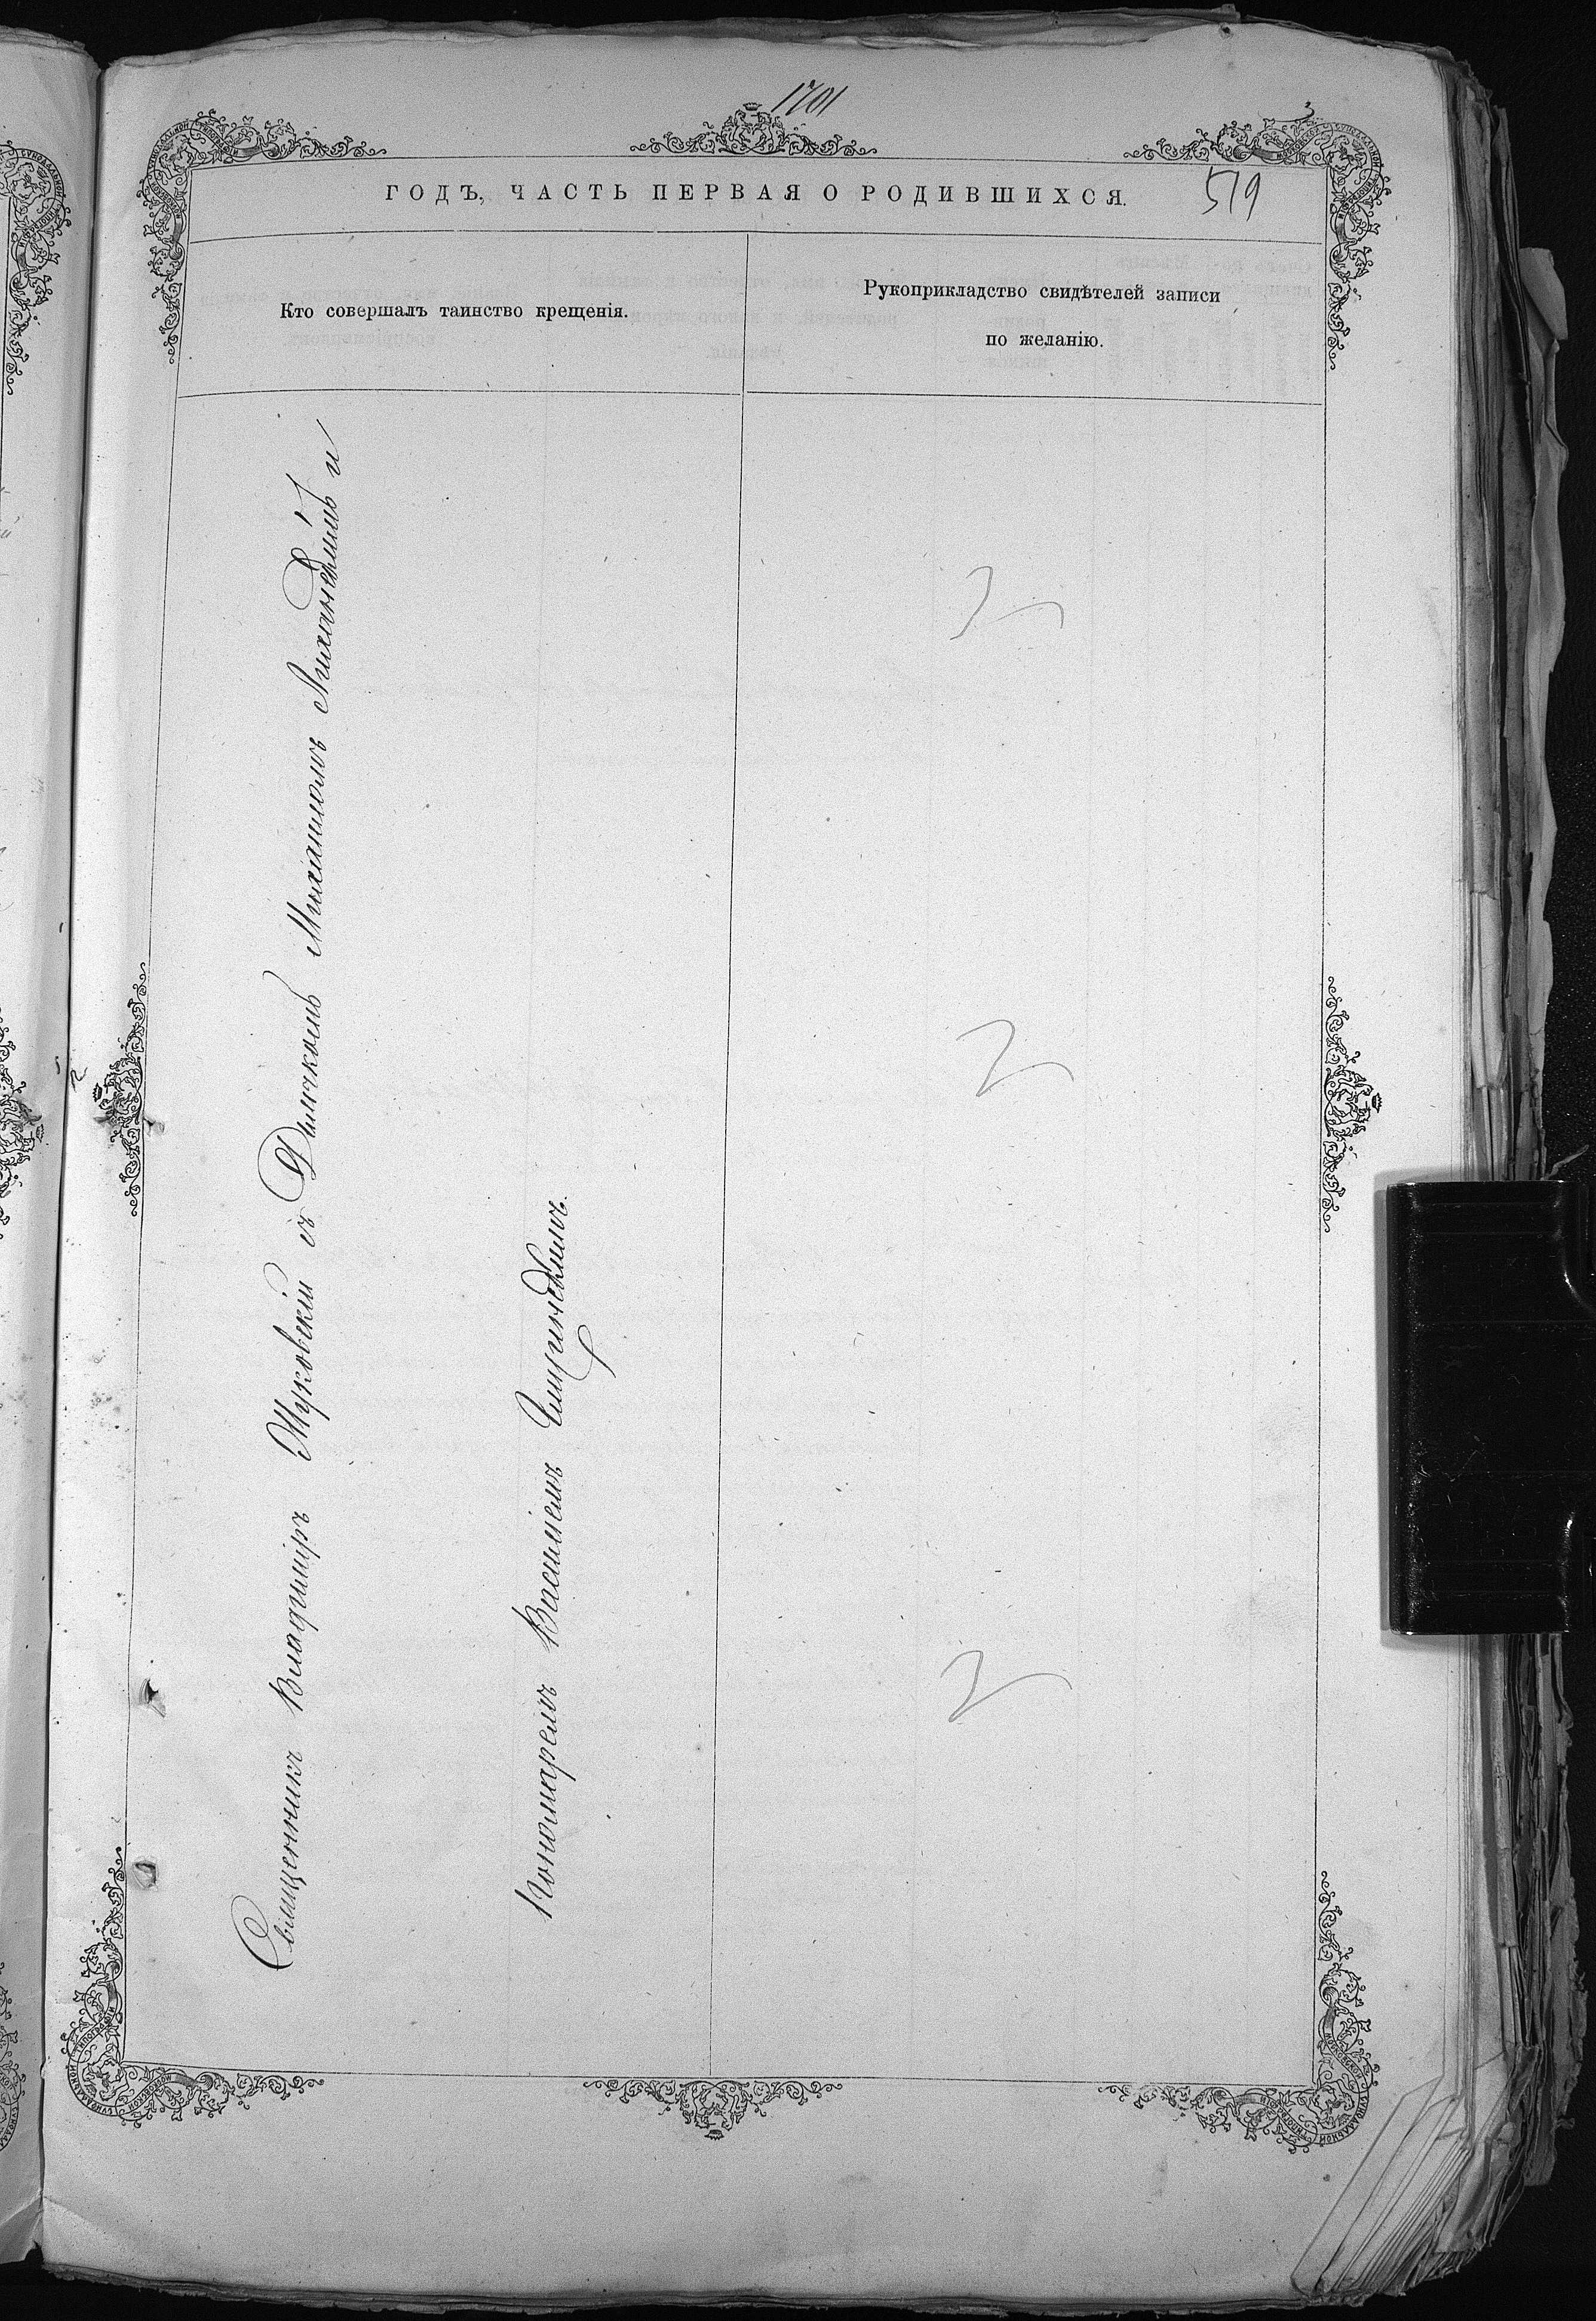 1701
3
ГОДЪ, ЧАСТЬ ПЕРВАЯ О РОДИВШИХСЯ.
519
Кто совершалъ таинство крещенія.
Рукоприкладство свидѣтелей записи
по желанію.
Священникъ Владиміръ Жуковскій съ Дьячкомъ Михаиломъ Лиханскимъ и
Пономаремъ Василіемъ